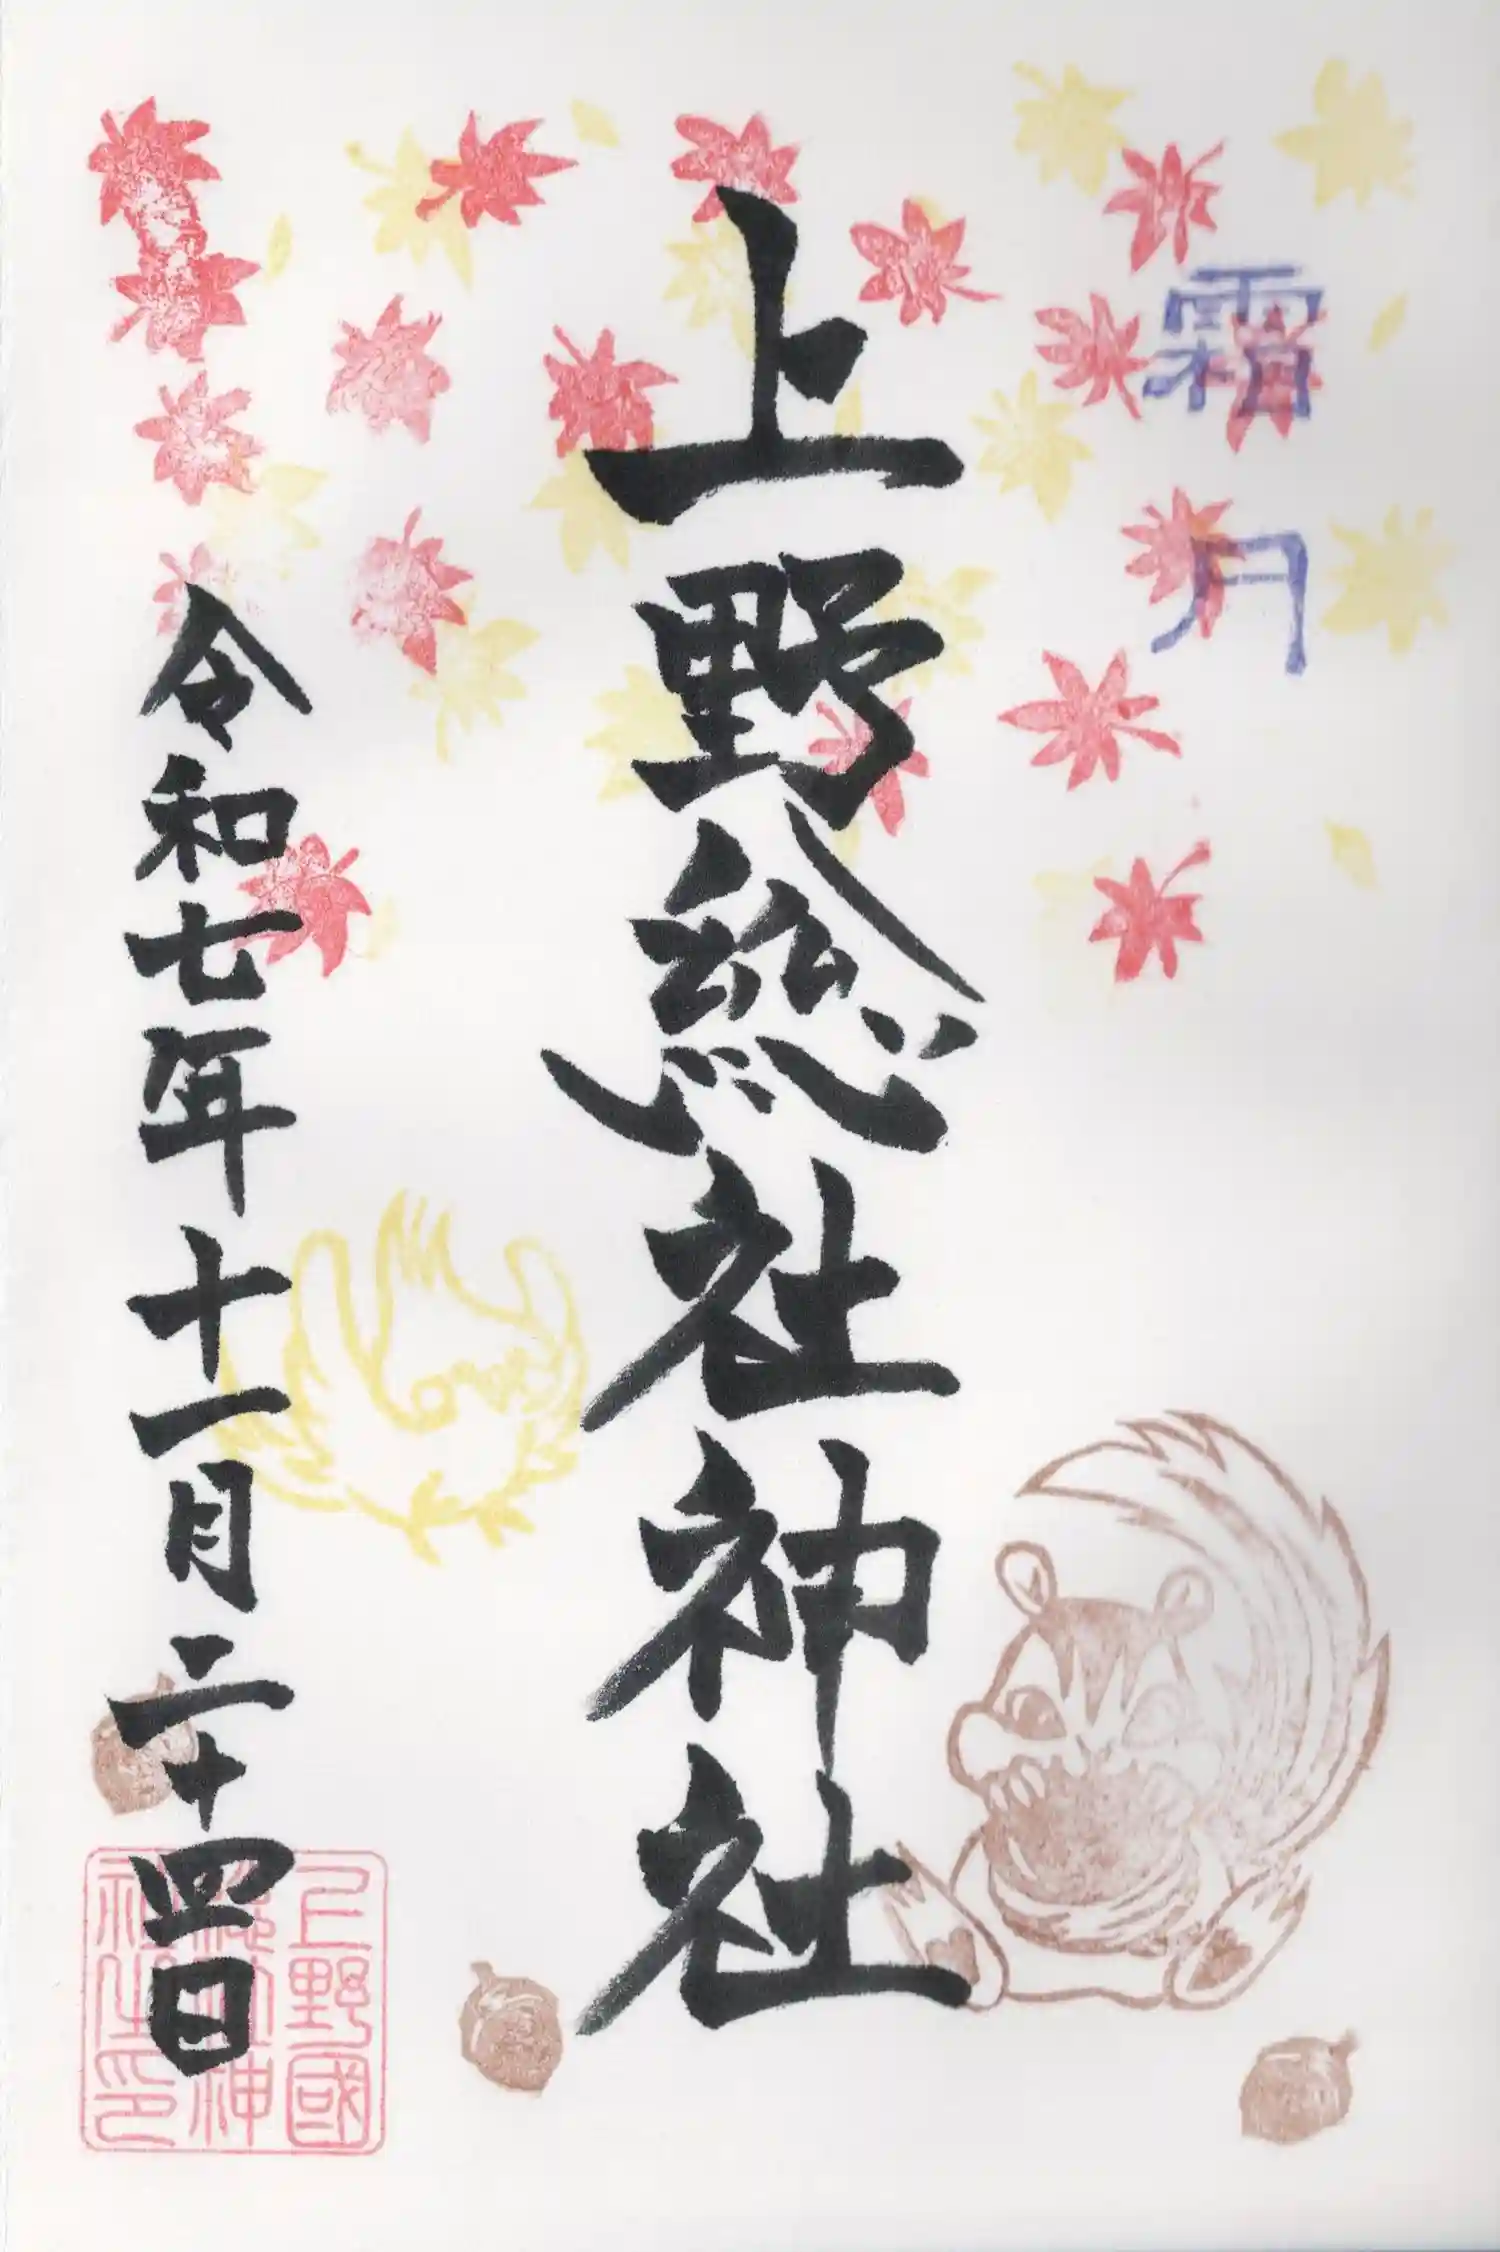 霜月
上野総社神社
令和七年十一月二十四日
上野國
総社神
社之印